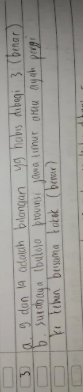 3. a. 9 dan 12 adalah bilangan yg habis dibagi 3 (benar)
b. surabaya ibukota provinsi jawa timur atau ayah pergi
ke kebun bersama kakek (benar)